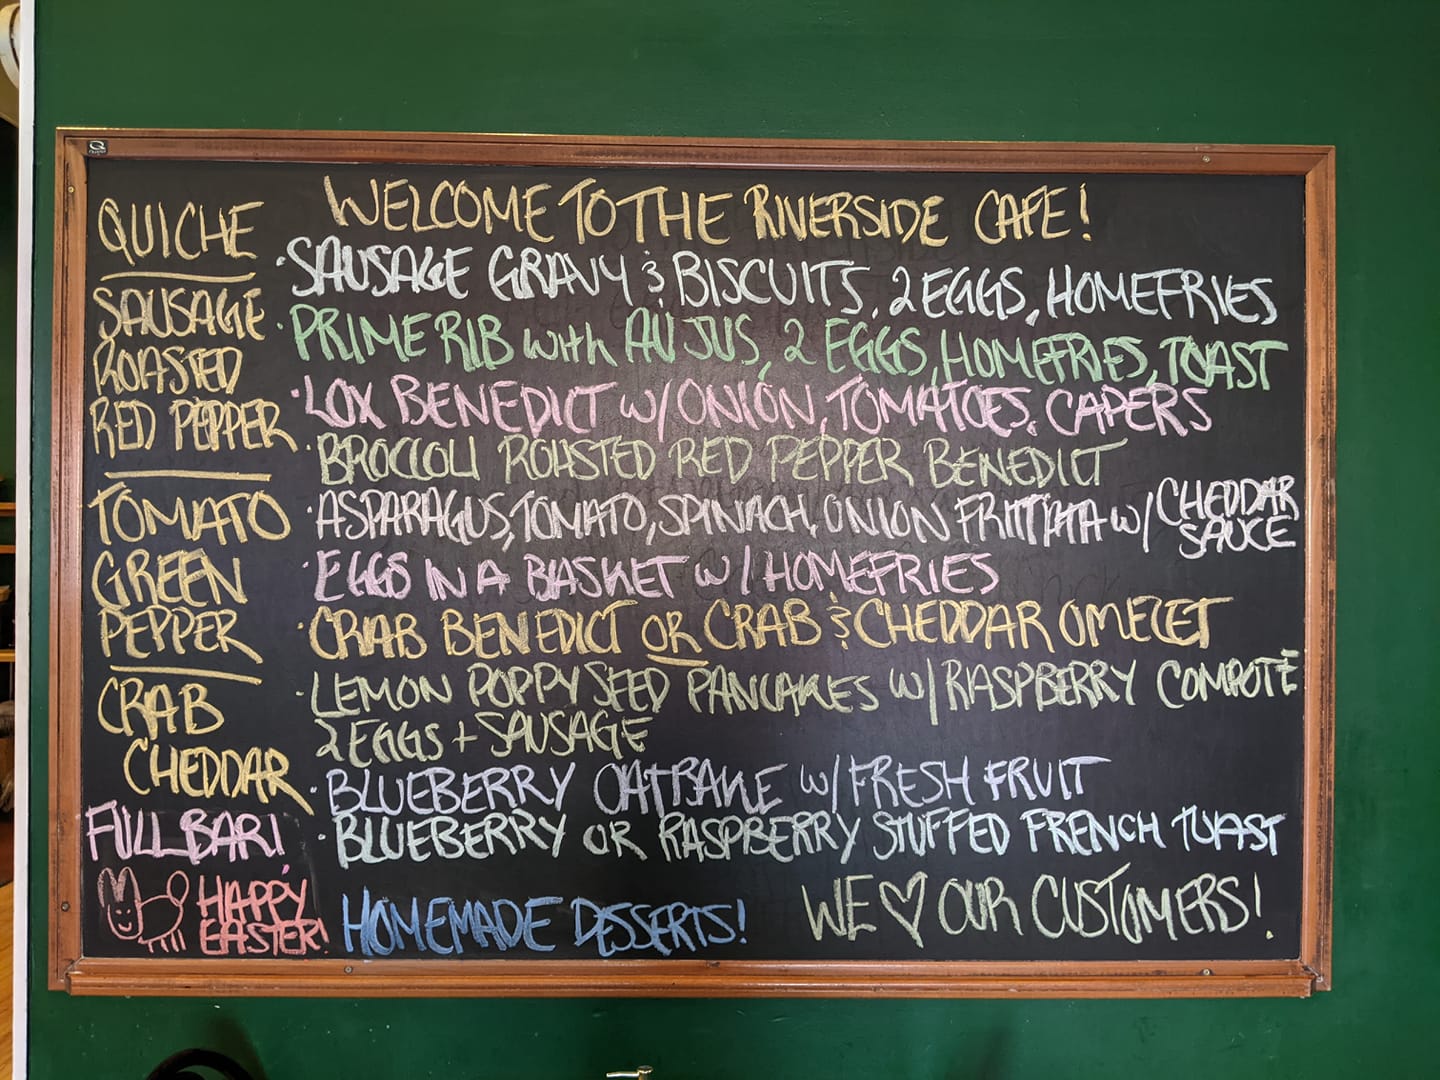 WELCOME TO THE RIVERSIDE CAFE!
QUICHE
SAUSAGE
ROASTED
RED PEPPER
TOMATO
GREEN
PEPPER
CRAB
CHEDDAR
FULL BAR!
HAPPY
EASTER!
· SAUSAGE GRAVY & BISCUITS, 2 EGGS, HOMEFRIES
· PRIME RIB with AU JUS, 2 EGGS, HOMEFRIES, TOAST
· LOX BENEDICT w/ ONION, TOMATOES, CAPERS
· BROCCOLI ROASTED RED PEPPER BENEDICT
· ASPARAGUS, TOMATO, SPINACH, ONION FRITTATA w/ CHEDDAR
SAUCE
· EGGS IN A BASKET w/ HOMEFRIES
· CRAB BENEDICT OR CRAB & CHEDDAR OMELET
· LEMON POPPYSEED PANCAKES w/ RASPBERRY COMPOTE
2 EGGS + SAUSAGE
· BLUEBERRY OATBAKE w/ FRESH FRUIT
· BLUEBERRY OR RASPBERRY STUFFED FRENCH TOAST
HOMEMADE DESSERTS!
WE ♡ OUR CUSTOMERS!